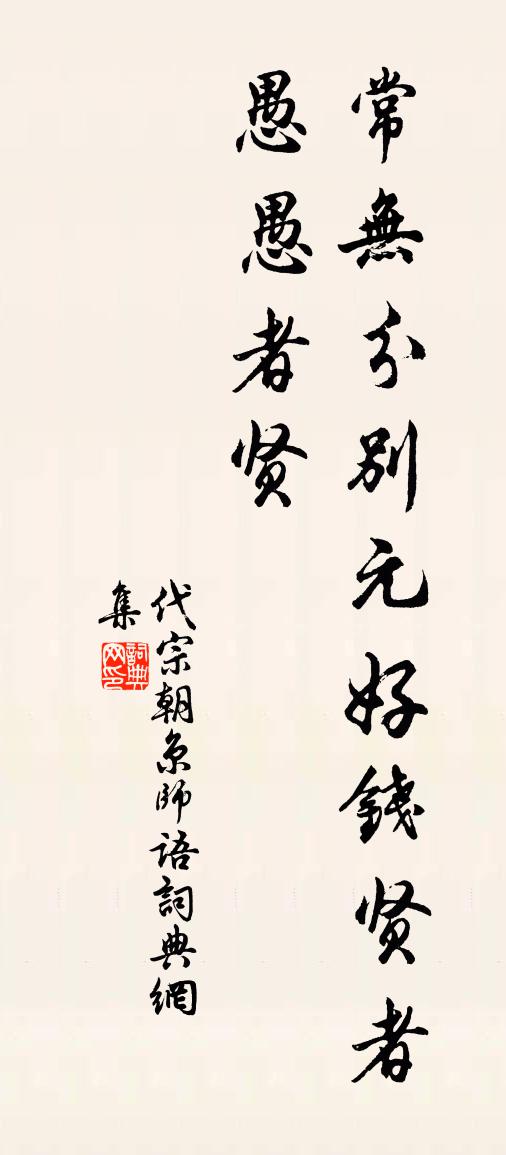 常無分别元好錢贤者
愚愚者贤
代宗朝京師語詞典網
集
詞典
网印